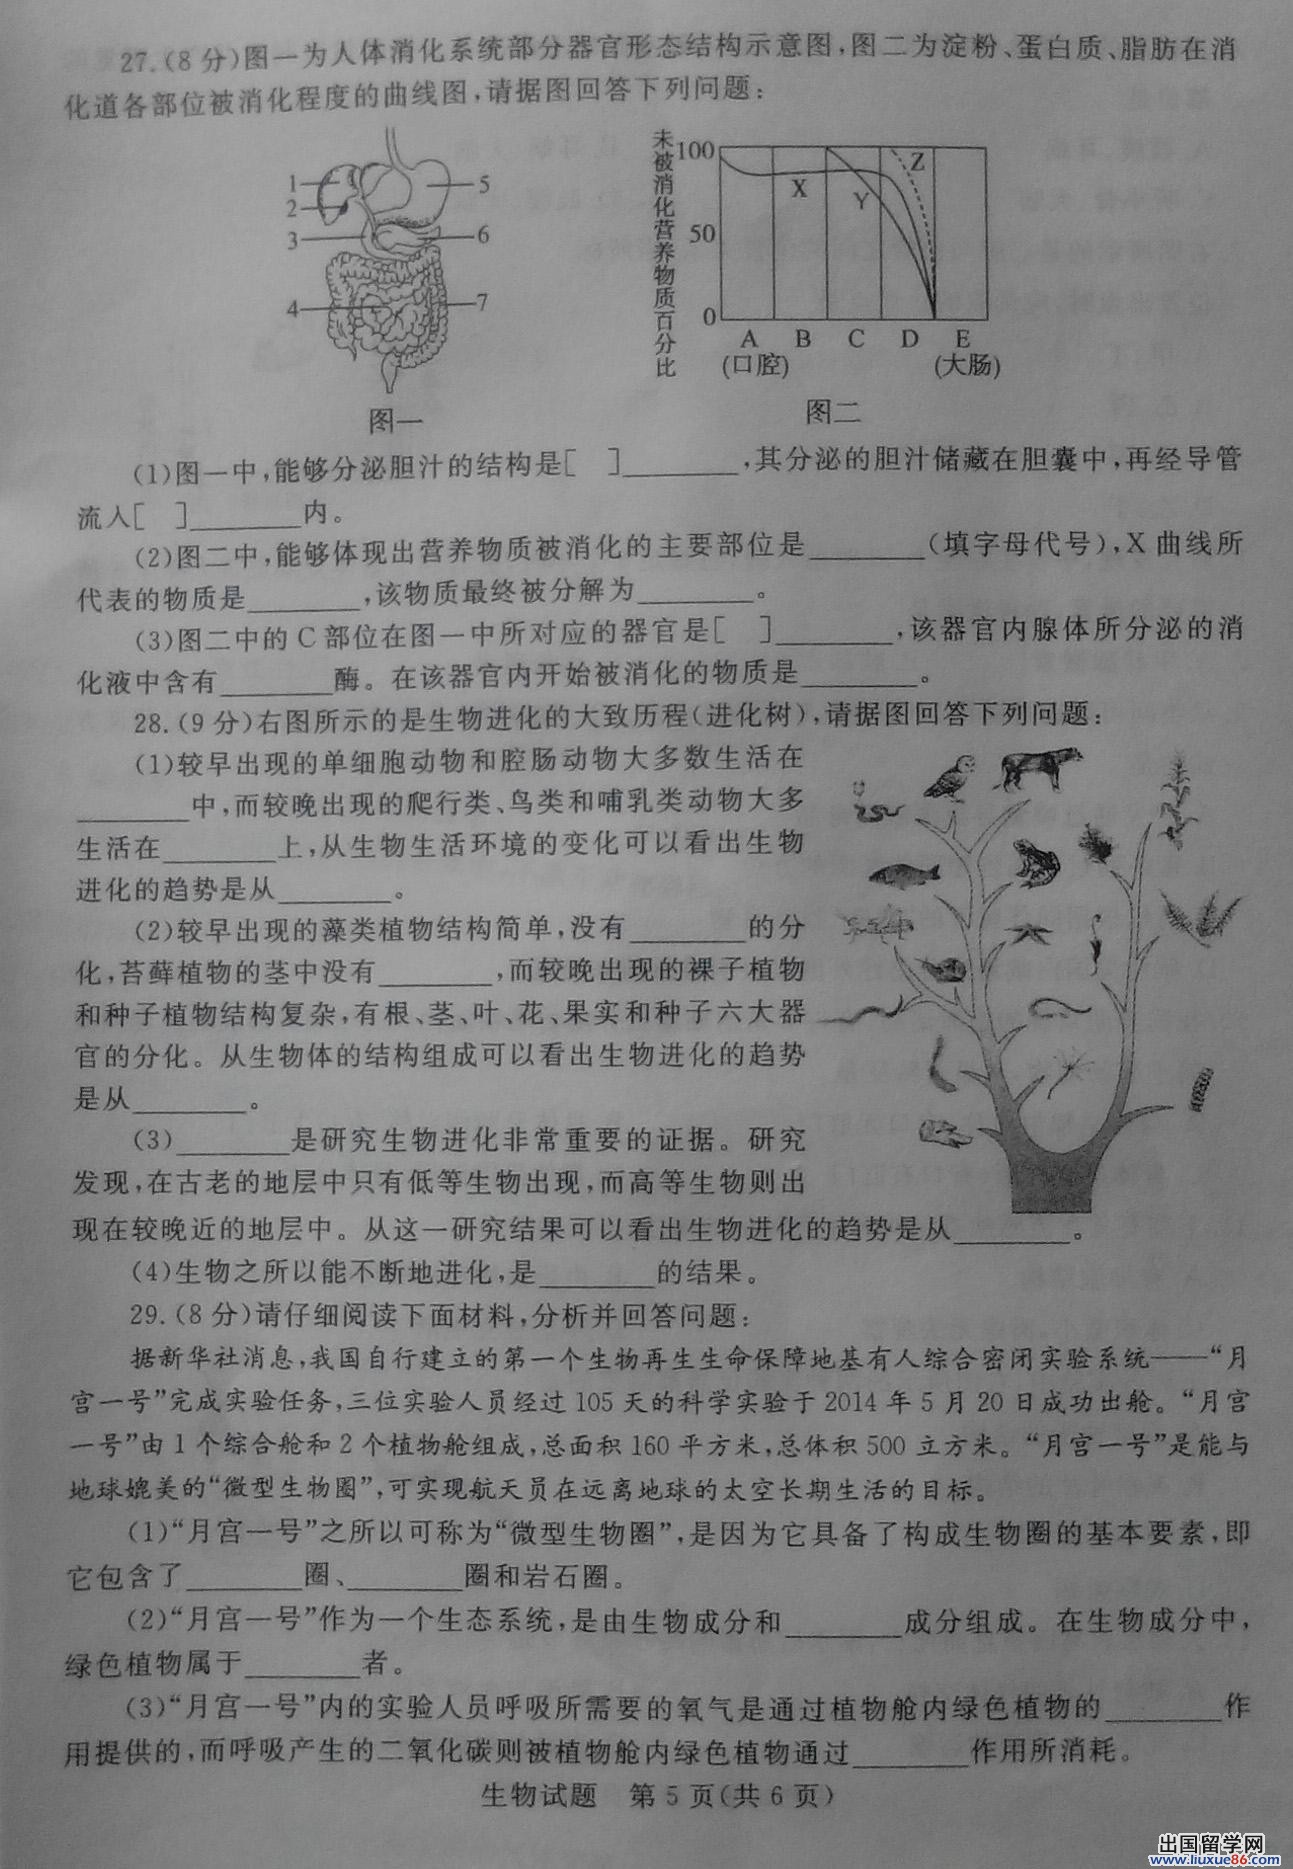 27.(8分)图一为人体消化系统部分器官形态结构示意图,图二为淀粉、蛋白质、脂肪在消
化道各部位被消化程度的曲线图,请据图回答下列问题:
1
2
3
4
5
6
7
图一
未被消化营养物质百分比
100
50
0
X
Y
Z
A B C D E
(口腔) (大肠)
图二
(1)图一中,能够分泌胆汁的结构是[ ]________,其分泌的胆汁储藏在胆囊中,再经导管
流入[ ]________内。
(2)图二中,能够体现出营养物质被消化的主要部位是________(填字母代号),X曲线所
代表的物质是________,该物质最终被分解为________。
(3)图二中的C部位在图一中所对应的器官是[ ]________,该器官内腺体所分泌的消
化液中含有________酶。在该器官内开始被消化的物质是________。
28.(9分)右图所示的是生物进化的大致历程(进化树),请据图回答下列问题:
(1)较早出现的单细胞动物和腔肠动物大多数生活在
________中,而较晚出现的爬行类、鸟类和哺乳类动物大多
生活在________上,从生物生活环境的变化可以看出生物
进化的趋势是从________。
(2)较早出现的藻类植物结构简单,没有________的分
化,苔藓植物的茎中没有________,而较晚出现的裸子植物
和种子植物结构复杂,有根、茎、叶、花、果实和种子六大器
官的分化。从生物体的结构组成可以看出生物进化的趋势
是从________。
(3)________是研究生物进化非常重要的证据。研究
发现,在古老的地层中只有低等生物出现,而高等生物则出
现在较晚近的地层中。从这一研究结果可以看出生物进化的趋势是从________。
(4)生物之所以能不断地进化,是________的结果。
29.(8分)请仔细阅读下面材料,分析并回答问题:
据新华社消息,我国自行建立的第一个生物再生生命保障地基有人综合密闭实验系统——“月
宫一号”完成实验任务,三位实验人员经过105天的科学实验于2014年5月20日成功出舱。“月宫
一号”由1个综合舱和2个植物舱组成,总面积160平方米,总体积500立方米。“月宫一号”是能与
地球媲美的“微型生物圈”,可实现航天员在远离地球的太空长期生活的目标。
(1)“月宫一号”之所以可称为“微型生物圈”,是因为它具备了构成生物圈的基本要素,即
它包含了________圈、________圈和岩石圈。
(2)“月宫一号”作为一个生态系统,是由生物成分和________成分组成。在生物成分中,
绿色植物属于________者。
(3)“月宫一号”内的实验人员呼吸所需要的氧气是通过植物舱内绿色植物的________作
用提供的,而呼吸产生的二氧化碳则被植物舱内绿色植物通过________作用所消耗。
生物试题 第5页(共6页)
出国留学网
www.liuxue86.com